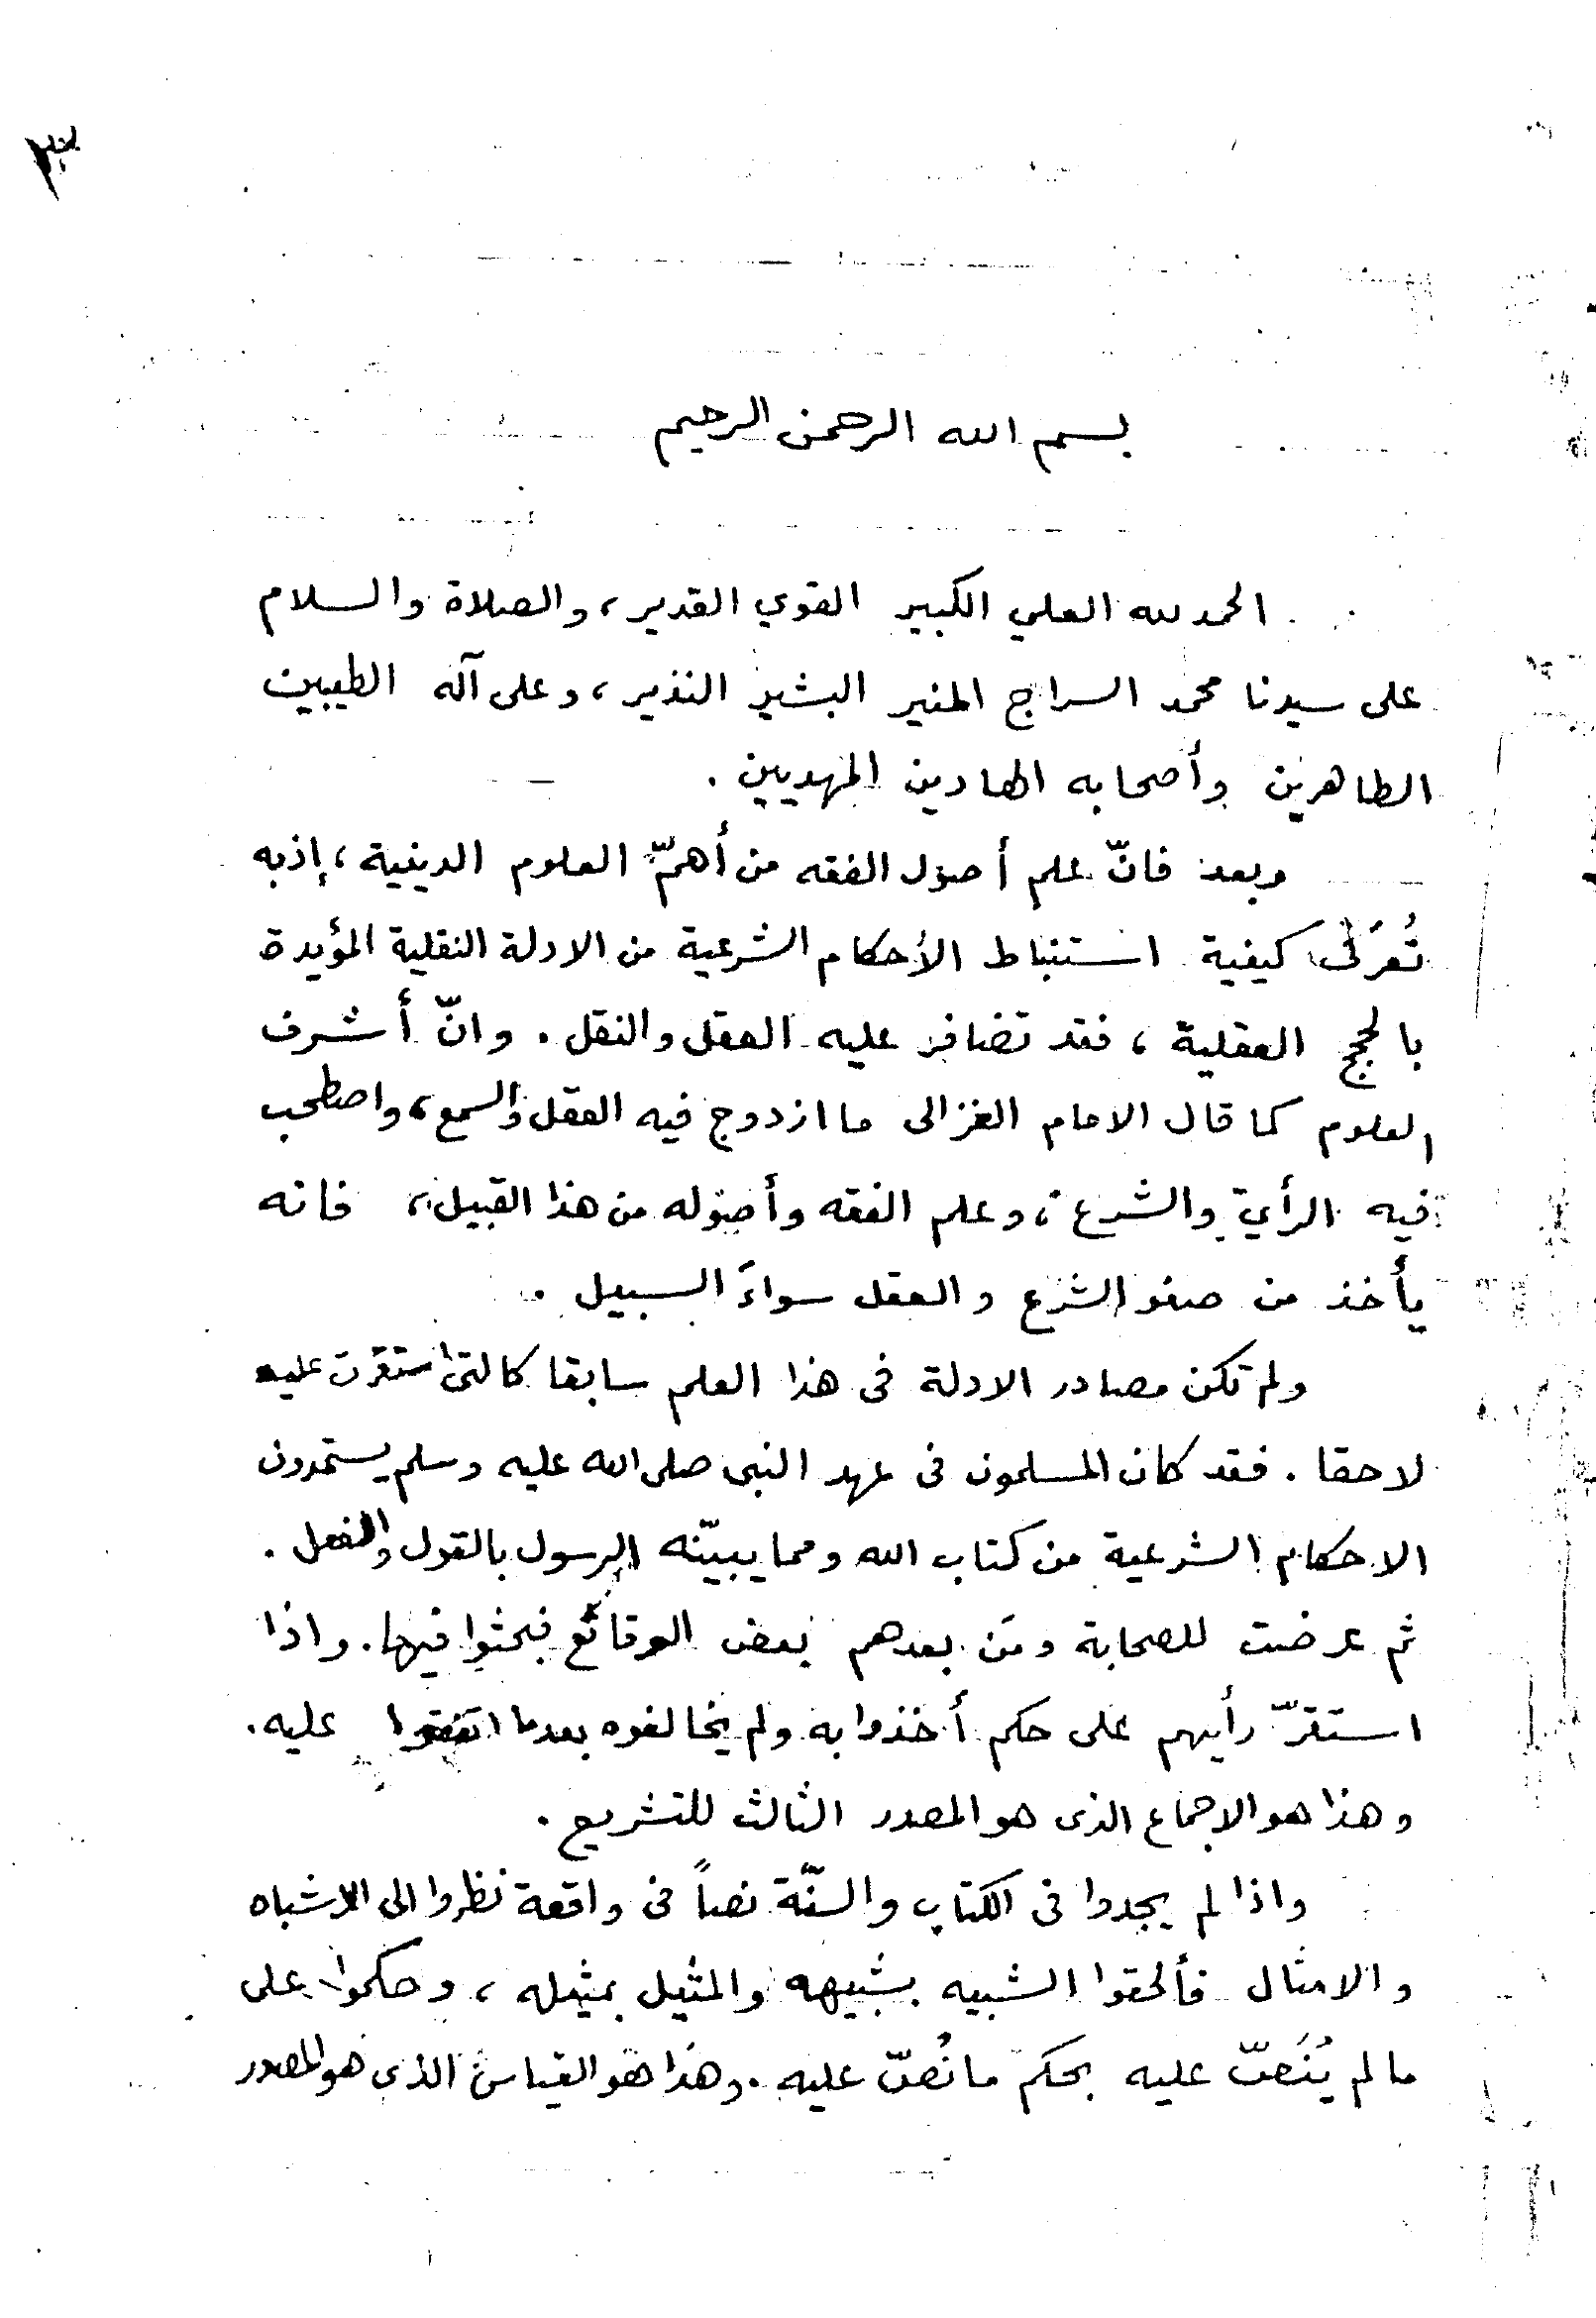 ٣
بسم الله الرحمن الرحيم
الحمد لله العلي الكبير القوي القدير، والصلاة والسلام
على سيدنا محمد السراج المنير البشير النذير، وعلى آله الطيبين
الطاهرين وأصحابه الهادين المهديين.
وبعد فانّ علم أصول الفقه من أهمّ العلوم الدينية، إذ به
تُعرَف كيفية استنباط الأحكام الشرعية من الادلة النقلية المؤيدة
بالحجج العقلية، فقد تضافر عليه العقل والنقل. وانّ أشرف
العلوم كما قال الامام الغزالى ما ازدوج فيه العقل والسمع، واصطحب
فيه الرأي والشرع، وعلم الفقه وأصوله من هذا القبيل، فانه
يأخذ من صفو الشرع والعقل سواءَ السبيل.
ولم تكن مصادر الادلة فى هذا العلم سابقا كالتى استقرت عليه
لاحقا. فقد كان المسلمون فى عهد النبى صلى الله عليه وسلم يستمدون
الاحكام الشرعية من كتاب الله ومما يبيّنه الرسول بالقول والفعل.
ثم عرضت للصحابة ومَن بعدهم بعض الوقائع فبحثوا فيها. واذا
استقرّ رأيهم على حكم أخذوا به ولم يخالفوه بعدما اتفقوا عليه.
وهذا هو الاجماع الذى هو المصدر الثالث للتشريع.
واذا لم يجدوا فى الكتاب والسنّة نصاً فى واقعة نظروا الى الاشباه
والامثال فألحقوا الشبيه بشبيهه والمثيل بمثيله، وحكموا على
ما لم يُنَصّ عليه بحكم ما نُصّ عليه. وهذا هو القياس الذى هو المصدر